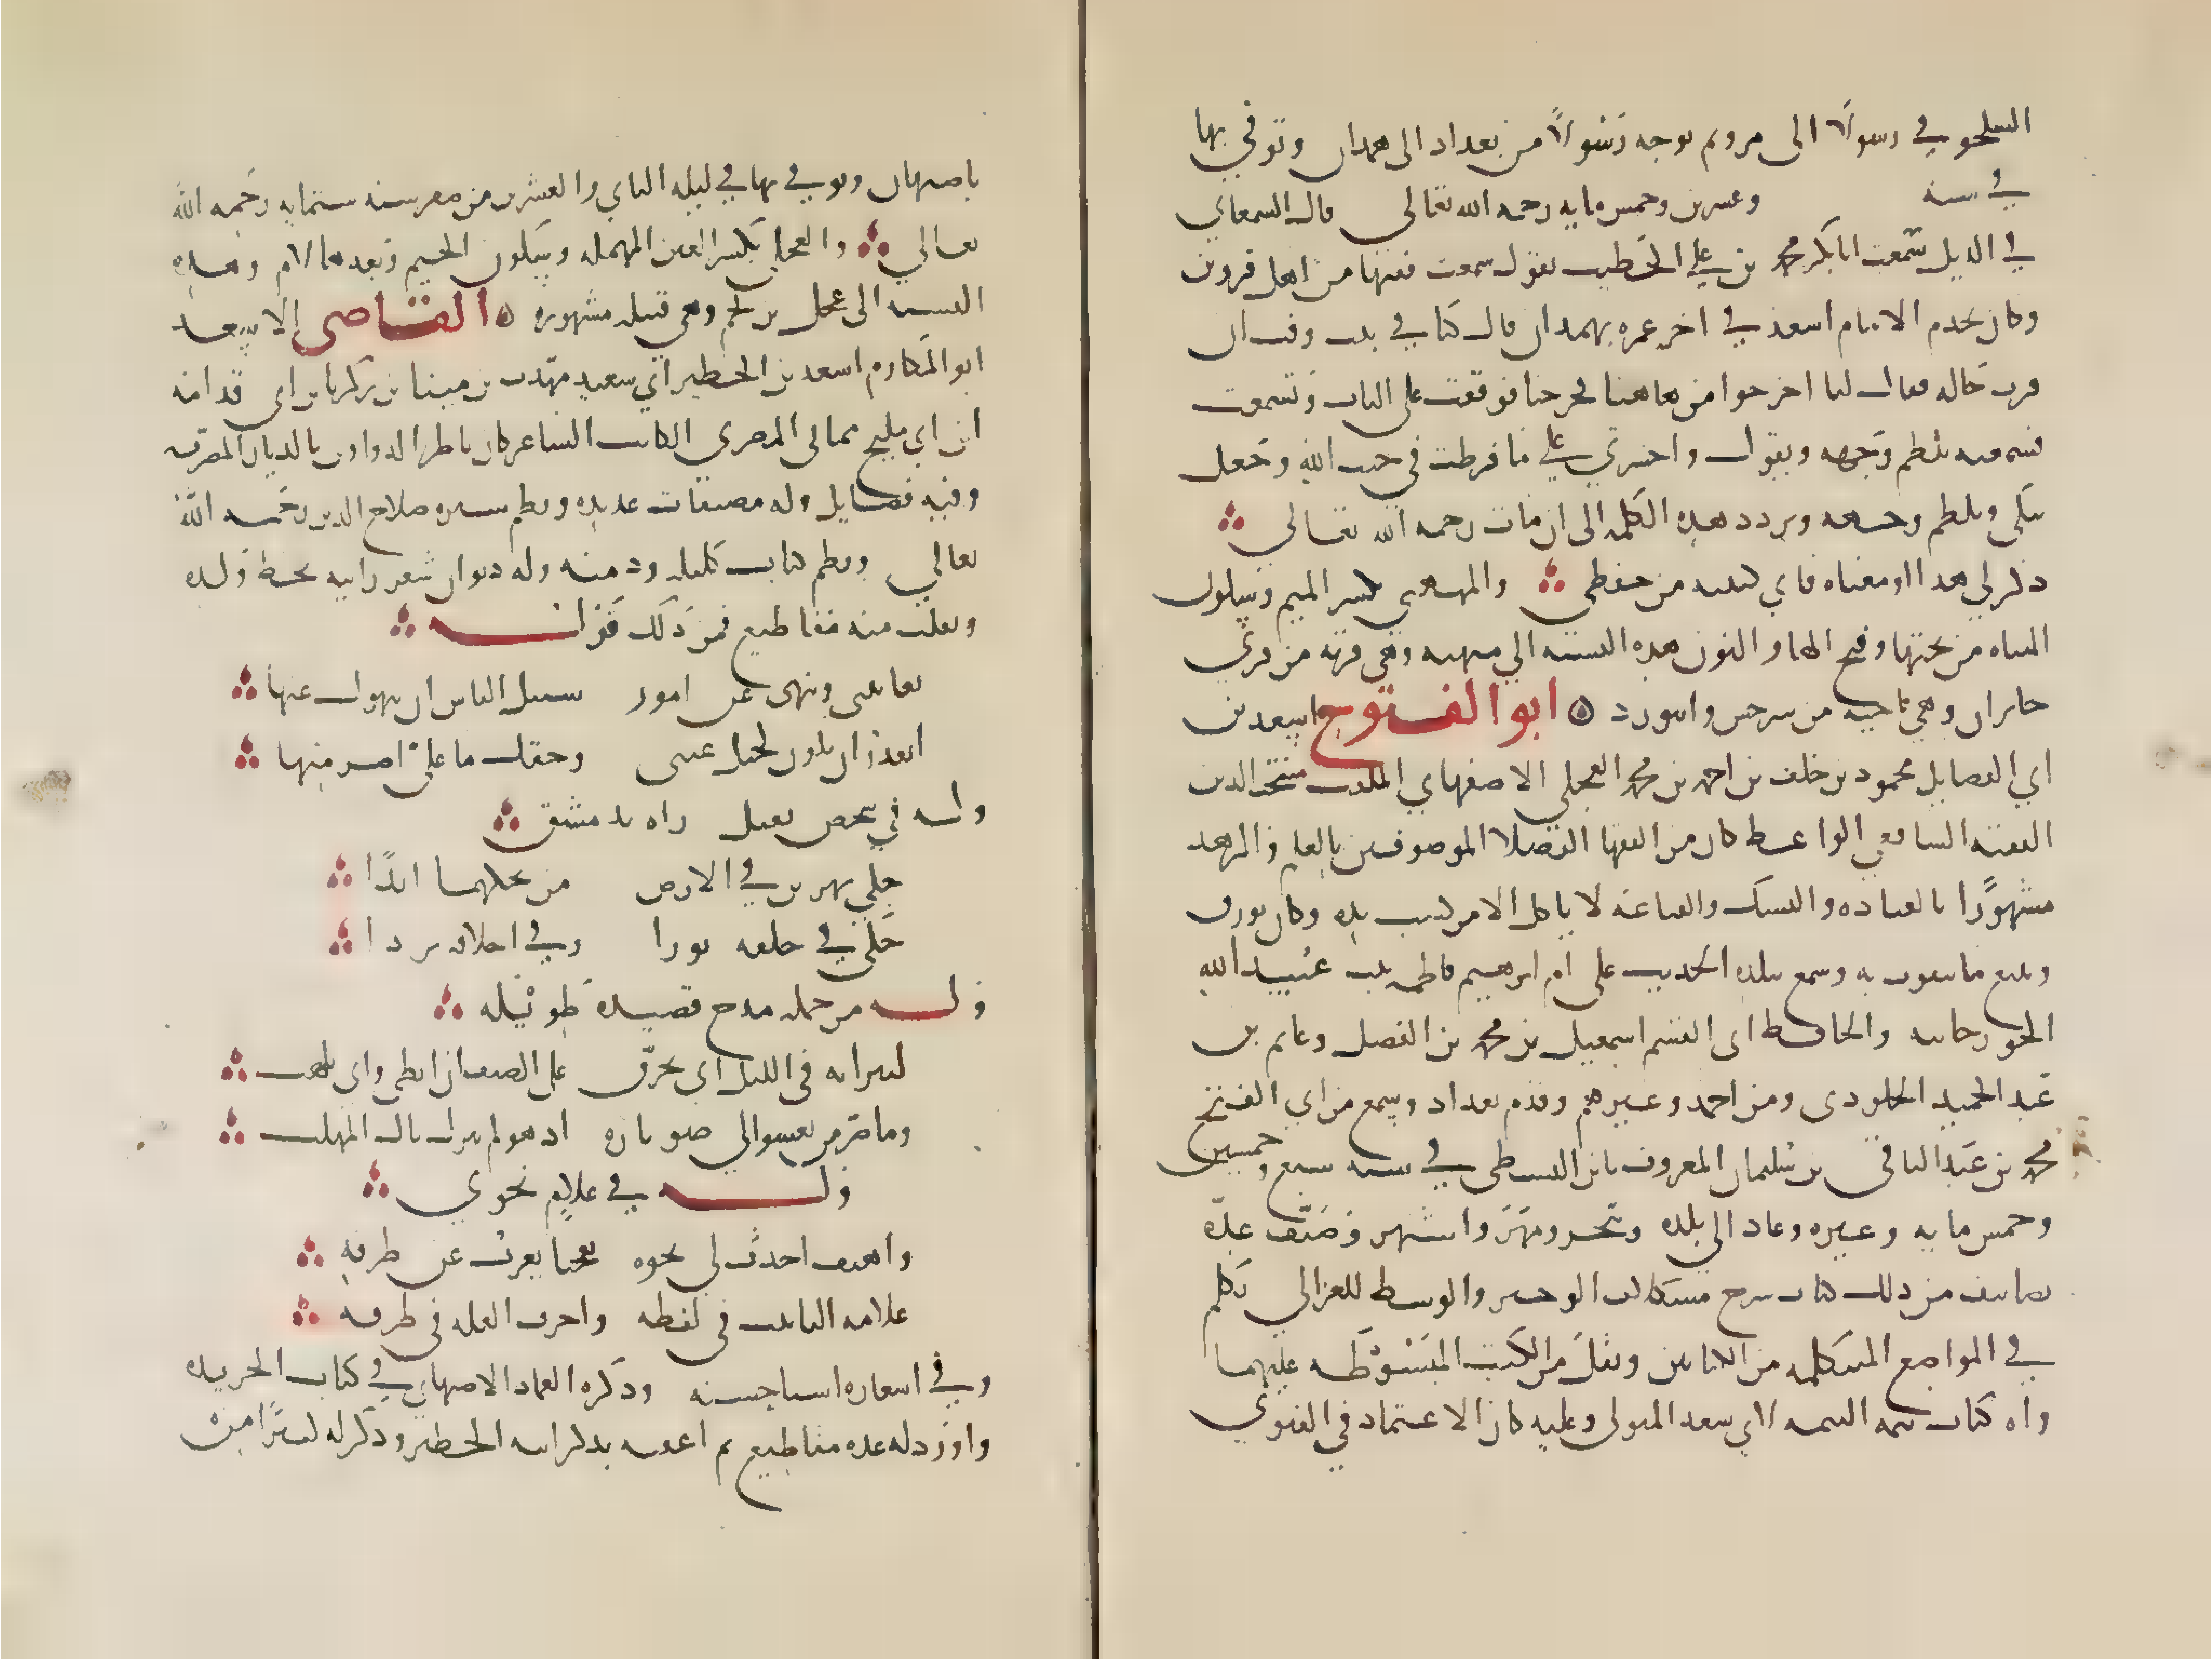 السلجوقي رسولا الى مرو ثم توجه رسولا من بغداد الى همدان وتوفي بها
في سنة وعشرين وخمس مايه رحمه الله تعالى قال السمعاني
في الذيل سمعت ابا بكر محمد بن علي الخطيب يقول سمعت فقيها من اهل قزوين
وكان يخدم الامام اسعد في اخر عمره بهمدان قال كنا في بيت وقت ان
قرب حاله فقال لنا اخرجوا من هاهنا فخرجنا فوقفت على الباب وتسمعت
فسمعته يلطم وجهه ويقول واحسرتي على ما فرطت في جنب الله وجعل
يبكي ويلطم وجهه ويردد هذه الكلمه الى ان مات رحمه الله تعالى
ذكر لي هذا او معناه فاني كتبته من حفظي والميهني بكسر الميم وسكون
المياه من تحتها وفتح الها والنون هذه النسبه الي ميهنه وهي قريه من قري
خابران وهي ناحيه من سرخس وابيورد ابو الفتوح اسعد بن
ابي الفضايل محمود بن خلف بن احمد بن محمد العجلي الاصفهاني الملقب منتخب الدين
الفقيه الشافعي الواعظ كان من الفقها الفضلا الموصوفين بالعلم والزهد
مشهورا بالعباده والنسك والقناعه لا ياكل الا من كسب يده وكان يورق
ويبيع ما يتقوت به وسمع ببلده الحديث على ام ابرهيم فاطمه بنت عبد الله
الجوزجانيه والحافظ ابي القسم اسمعيل بن محمد بن الفضل وغانم بن
عبد الحميد الجلودي ومن احمد وغيرهم وقدم بغداد وسمع من ابي الفتح
محمد بن عبد الباقي بن سليمان المعروف بابن البطي في سنه سبع وخمسين
وخمس مايه وغيره وعاد الى بلده وتبحر ومهر واشتهر وصنف عده
تصانيف من ذلك كتاب شرح مشكلات الوجيز والوسيط للغزالي تكلم
في المواضع المشكله من الكتابين ونقل من الكتب المبسوطه عليهما
وله كتاب تتمه التتمه لابي سعد المتولي وعليه كان الاعتماد في الفتوي
باصبهان وتوفي بها في ليله الثاني والعشرين من صفر سنه ستمايه رحمه الله
تعالي والعجلي بكسر العين المهمله وسكون الجيم وبعدها لام وهذه
النسبه الى عجل بن لجيم وهي قبيله مشهوره القاضي الاسعد
ابو المكارم اسعد بن الخطير ابي سعيد مهذب بن مينا بن زكريا بن ابي قدامه
ابن ابي مليح مماتي المصري الكاتب الشاعر كان ناظر الدواوين بالديار المصريه
وفيه فضايل وله مصنفات عديده ونظم سيره صلاح الدين رحمه الله
تعالي ونظم كتاب كليله ودمنه وله ديوان شعر رايته بخط ولده
ونقلت منه مقاطيع فمن ذلك قوله
تعاتبني وتنهى عن امور سبيل الناس ان ينهوك عنها
اتقدر ان تكون كمثل عيني وحقك ما علي اضر منها
وله في شخص ثقيل راه بدمشق
حكي نهرين في الارض من يحكهما ابدا
حكى في خلقه ثورا وفي اخلاقه بردا
وله من جمله مدح قصيده طويله
لنيرانه في الليل اي تحرق على الضيف ان ابطى واي تلهب
وما ضر من يعشو الى ضو ناره اذ هو لم ينزل بال المهلب
وله في غلام نحوي
واهيف احدث لي نحوه تعجبا يعرب عن ظرفه
علامه التانيث في لفظه واحرف العله في طرفه
وفي اشعاره اشيا حسنه وذكره العماد الاصبهاني في كتاب الخريده
واورد له عده مقاطيع ثم اعقبه بذكر ابيه الخطير وذكر له كثيرا من